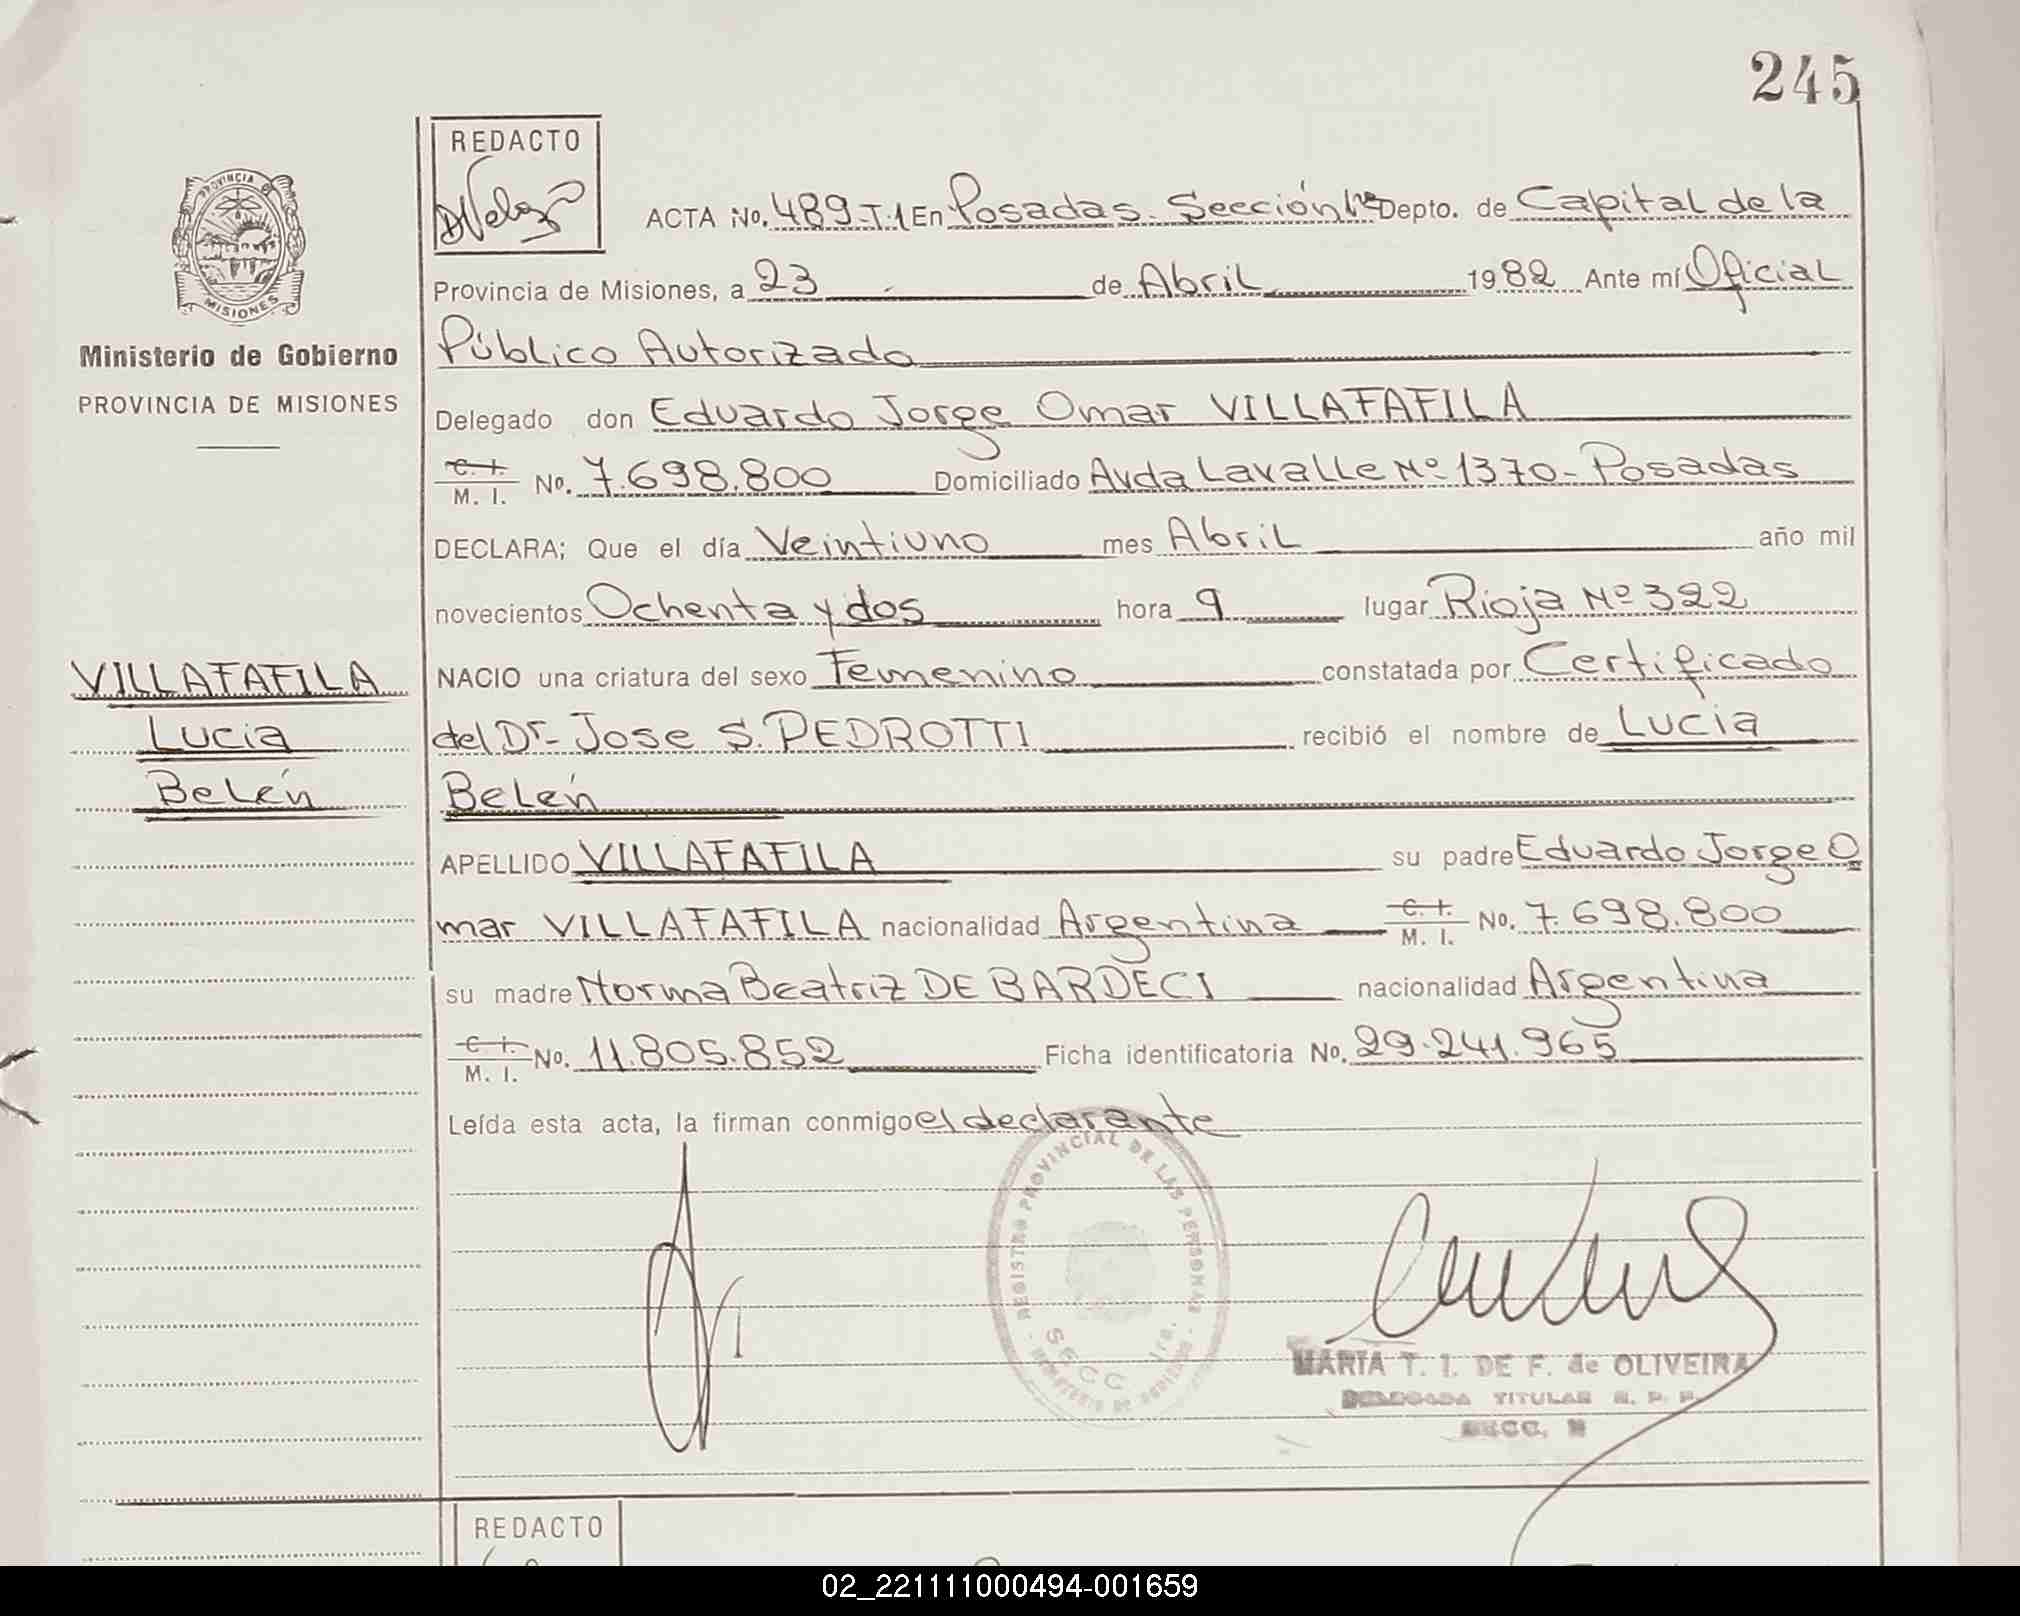 245
REDACTO
PROVINCIA DE MISIONES
ACTA No. 489-T.1 En Posadas. Sección 1ra Depto. de Capital de la
Provincia de Misiones, a 23 de Abril 1982 Ante mí Oficial
Público Autorizado
Ministerio de Gobierno
PROVINCIA DE MISIONES
Delegado don Eduardo Jorge Omar VILLAFAFILA
C. I. M. I. No. 7.698.800 Domiciliado Avda Lavalle Nº 1370 - Posadas
DECLARA; Que el día Veintiuno mes Abril año mil
novecientos Ochenta y dos hora 9 lugar Rioja Nº 322
VILLAFAFILA
Lucia
Belén
NACIO una criatura del sexo Femenino constatada por Certificado
del Dr- Jose S. PEDROTTI recibió el nombre de Lucia
Belén
APELLIDO VILLAFAFILA su padre Eduardo Jorge O
mar VILLAFAFILA nacionalidad Argentina C. I. M. I. No. 7.698.800
su madre Norma Beatriz DE BARDECI nacionalidad Argentina
C. I. M. I. No. 11.805.852 Ficha identificatoria No. 29.241.965
Leída esta acta, la firman conmigo el declarante
REGISTRO PROVINCIAL DE LAS PERSONAS
SECC 1ra.
MARIA T. I. DE F. de OLIVEIRA
DELEGADA TITULAR R. P. P.
SECC.
REDACTO
02_221111000494-001659